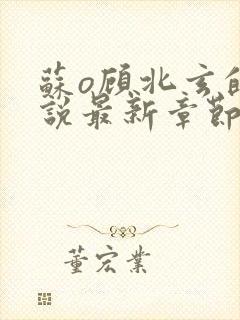 蘇o顾北玄的
說最新章節
董宏業